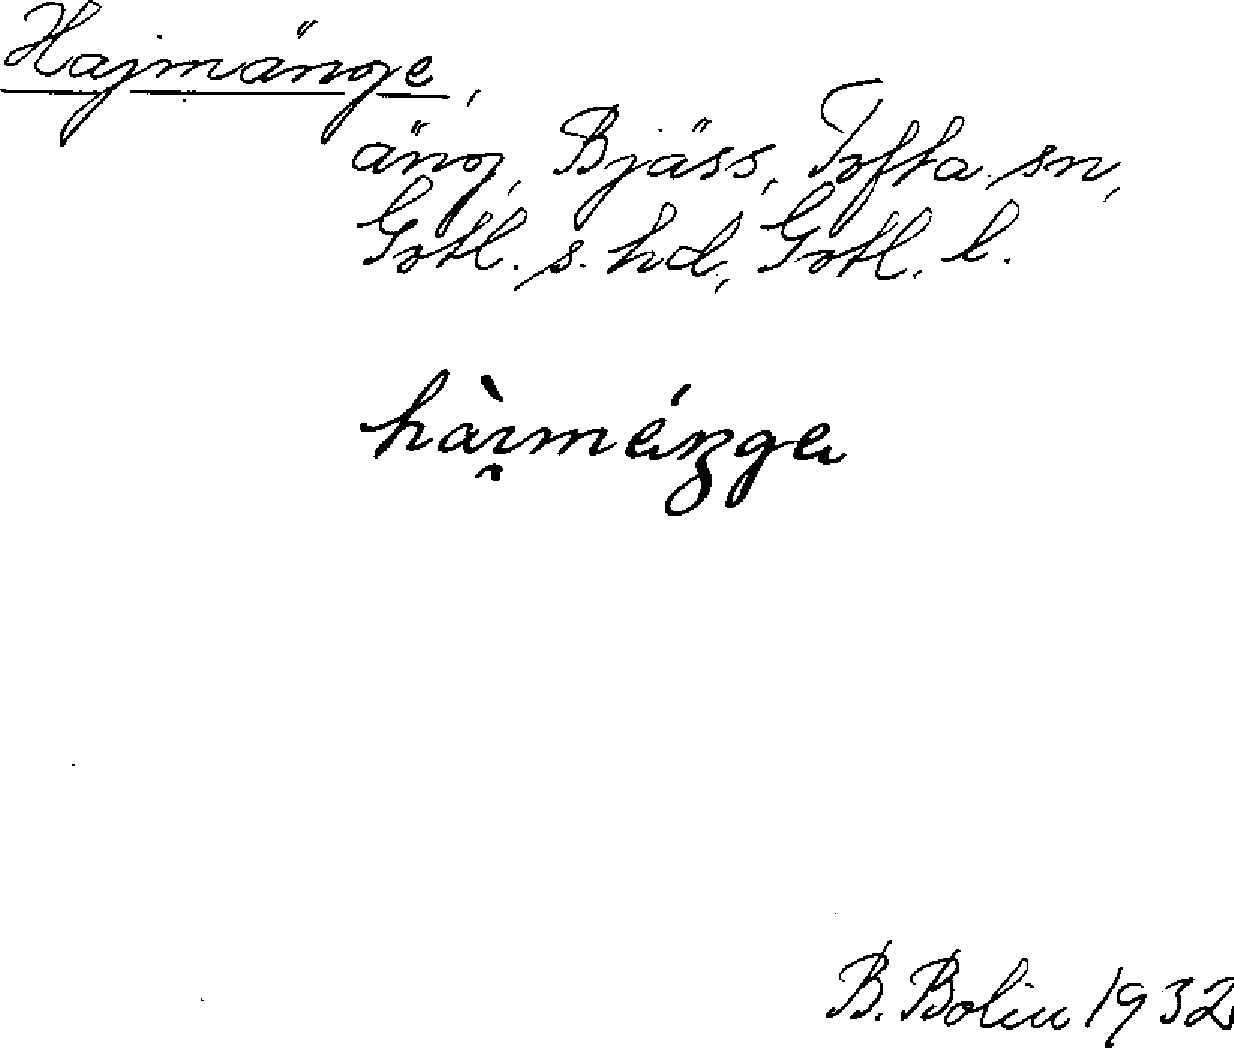 Hajmänge,
äng, Bjäss, Tofta sn,
Gotl. s. hd., Gotl. l.
hàı̯méŋgə
B. Bolin 1932